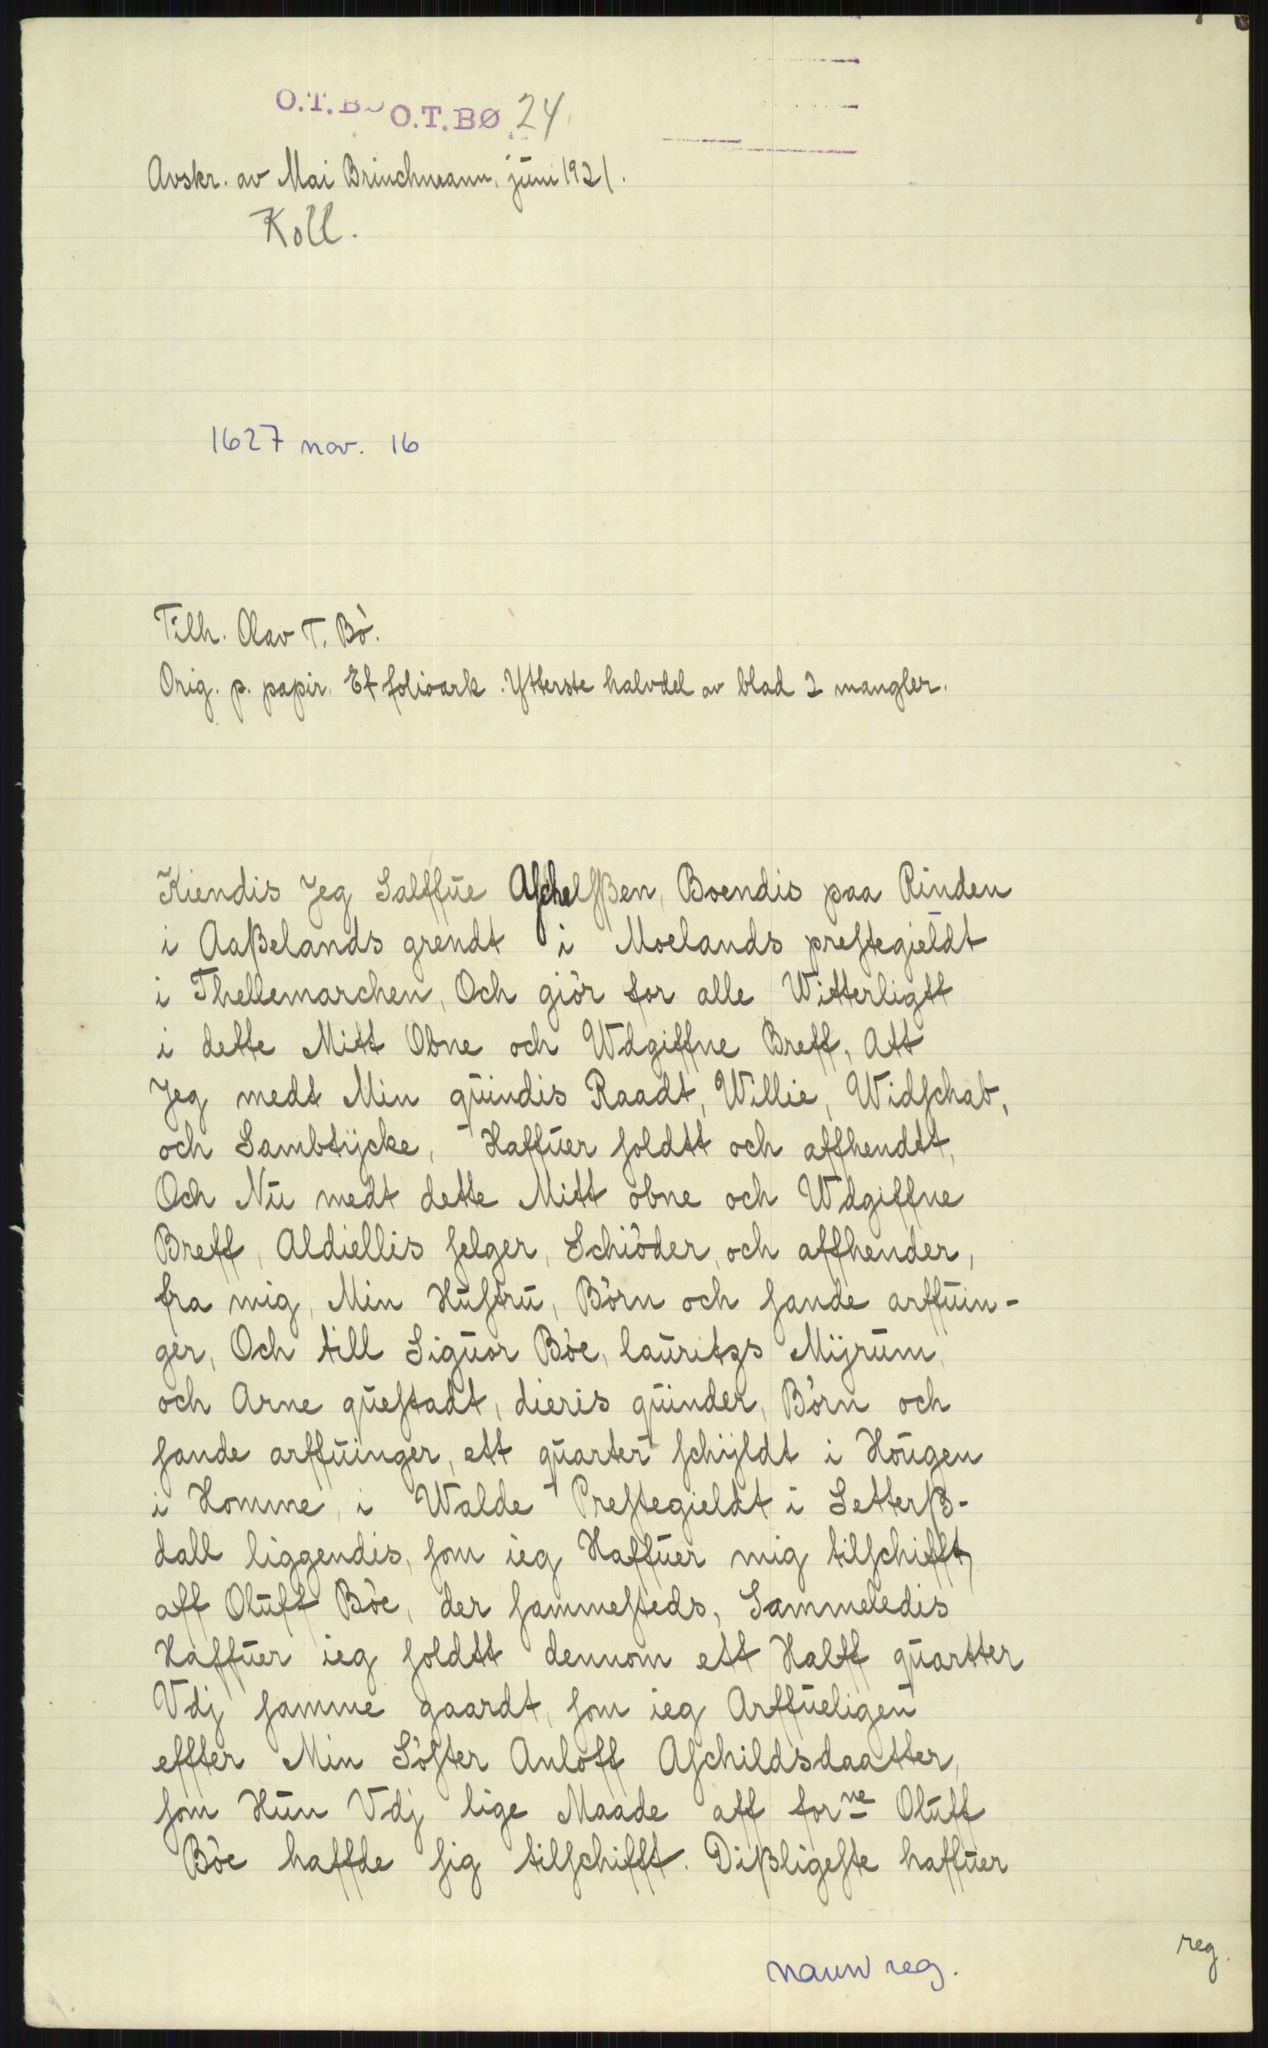 O.T.BØ O.T.BØ 24
Avskr. av Mai Brinchmann, juni 1921.
Koll.
1627 nov. 16
Tilh. Olav T. Bø.
Orig. p. papir. Et folioark. Ytterste halvdel av blad 2 mangler.
Kiendis Jeg Salffue Aſchelſßen, Boendis paa Rinden
i Aaßelands grendt i Moelands preſtegieldt
i Thellemarchen, Och giör for alle Witterligtt
i dette Mitt Obne och Wdgiffne Breff, Att
Jeg medt Min quindis Raadt, Willie, Widſchab,
och Sambtÿcke, Haffuer ſoldtt och affhendtt,
Och Nu medt dette Mitt obne och Wdgiffne
Breff, Aldiellis ſelger, Schiöder, och affhender,
fra mig, Min Huſtru, Börn och ſande arffuin-
ger, Och till Siguor Böe, lauritzs Mÿrum,
och Arne queſtadt, dieris quinder, Börn och
ſande arffuinger, ett quarter ſchÿldt i Hougen
i Homme, i Walde Preſtegieldt i Setterß-
dall liggendis, ſom ieg Haffuer mig tilſchifft,
aff Oluff Böe, der ſammeſteds, Sammeledis
Haffuer ieg ſoldtt dennom ett Halff quartter
Vdj ſamme gaardt, ſom ieg Arffueligen
effter Min Söſter Anloff Aſchildsdaatter,
ſom Hun Vdj lige Maade aff forne Oluff
Böe haffde ſig tilſchifft. Dißligeſte haffuer
reg.
navn reg.